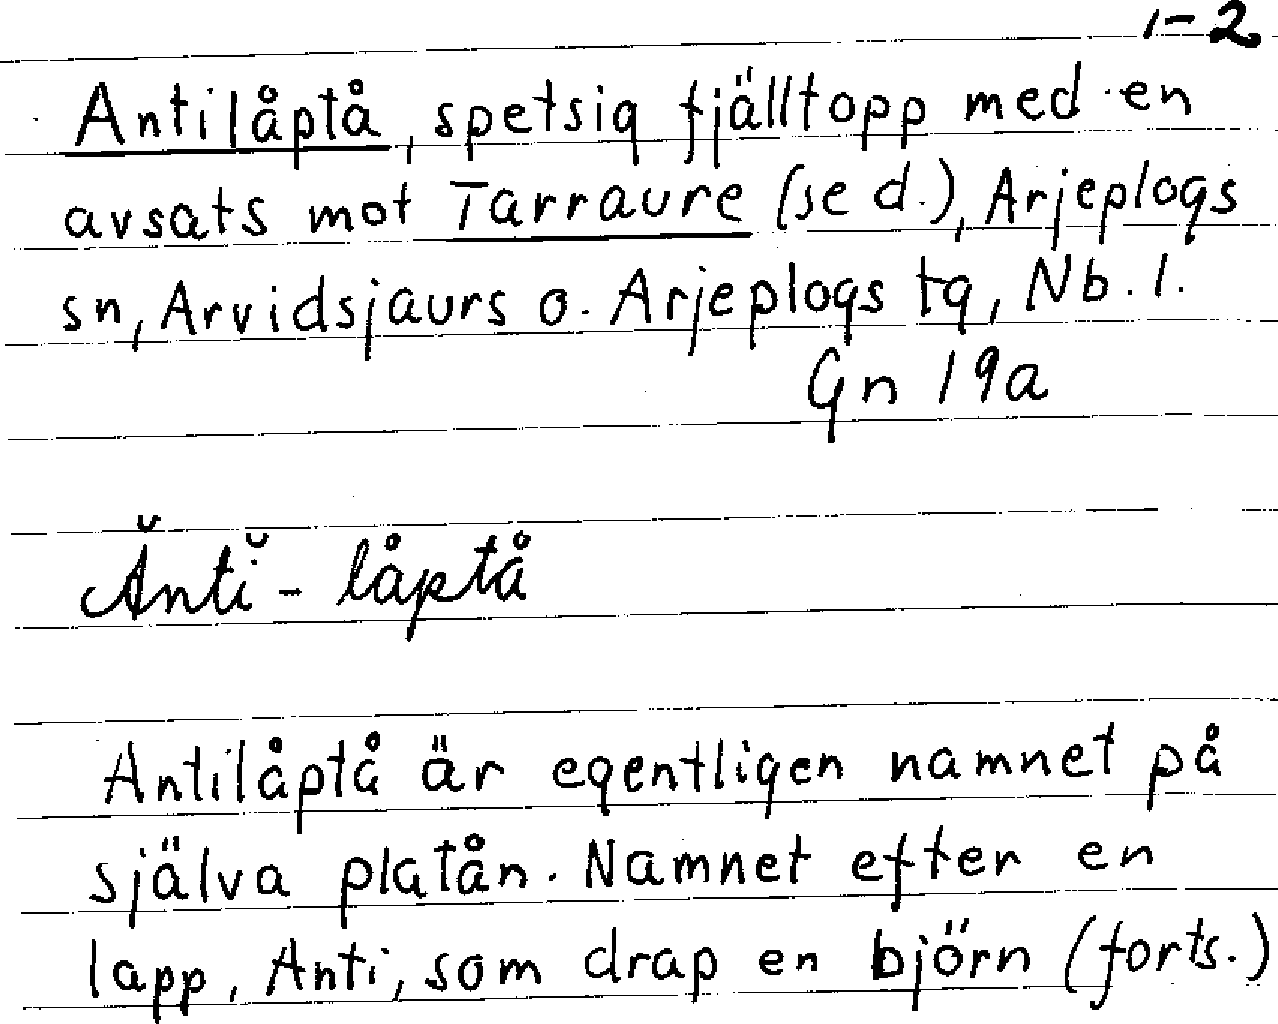 1-2
Antilåptå, spetsig fjälltopp med en
avsats mot Tarraure (se d.), Arjeplogs
sn, Arvidsjaurs o. Arjeplogs tg, Nb. l.
Gn 19a
Ăntĭ - låptå
Antilåptå är egentligen namnet på
själva platån. Namnet efter en
lapp, Anti, som drap en björn (forts.)